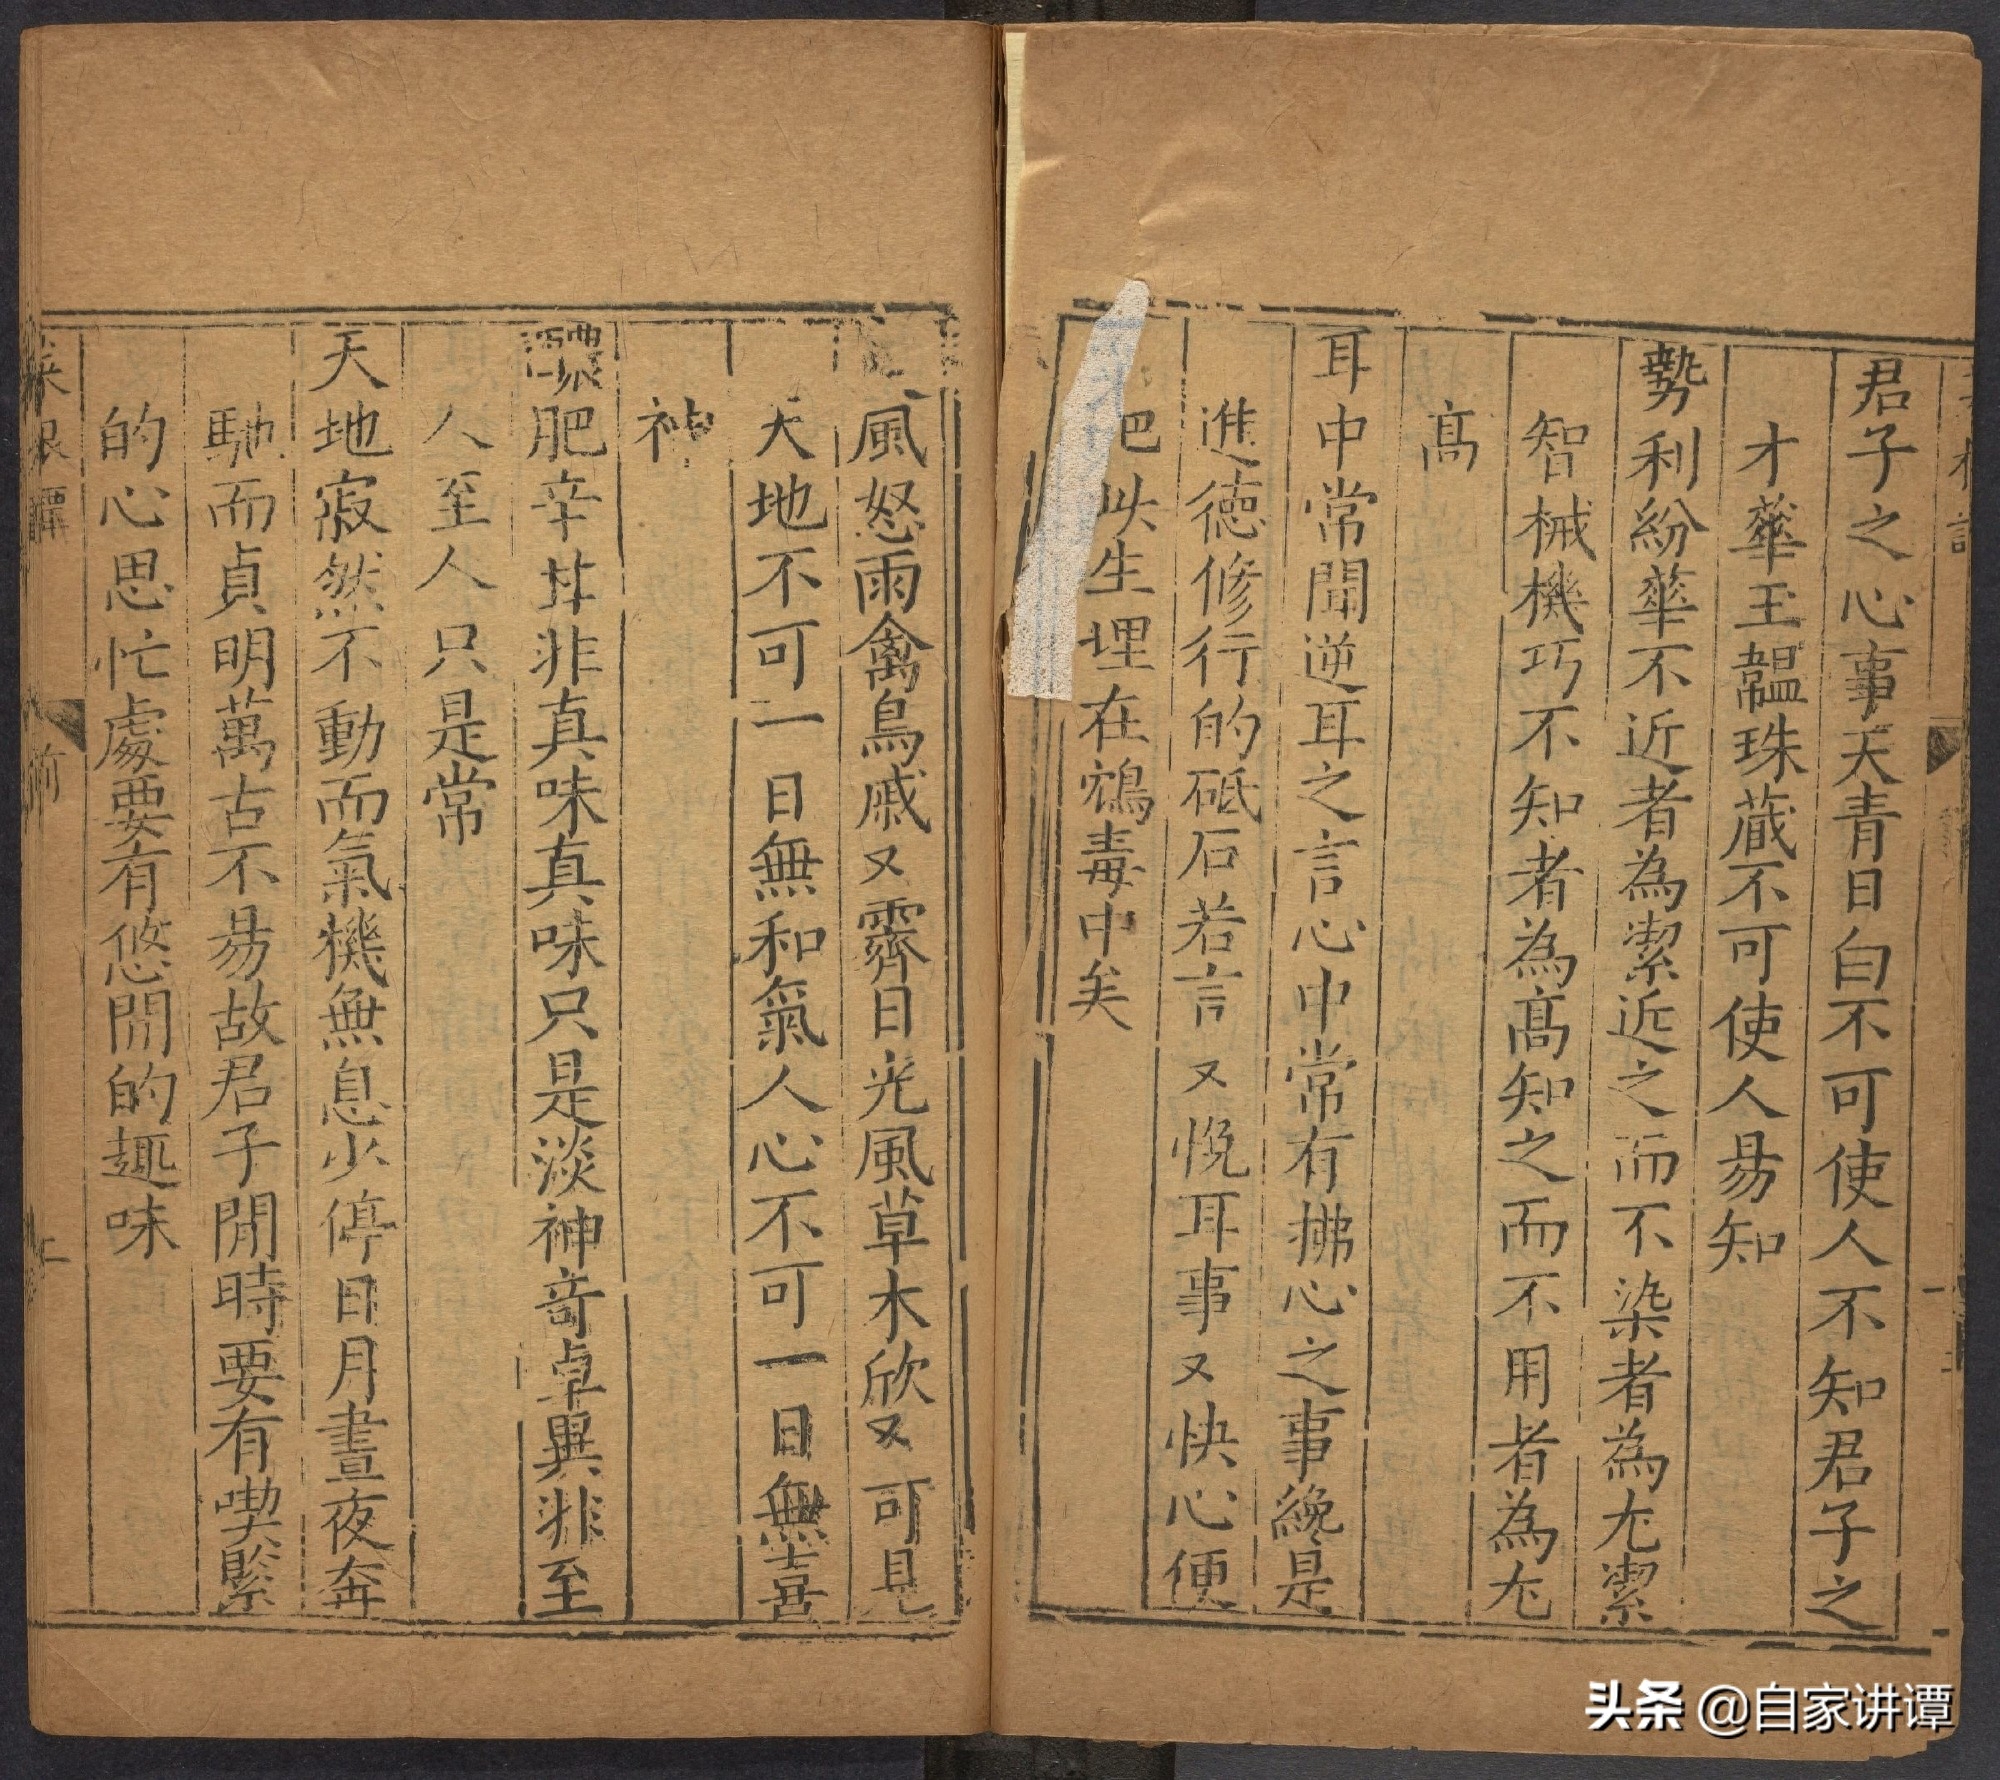 君子之心事天青日白不可使人不知君子之
才華玉韞珠蔵不可使人易知
勢利紛華不近者為潔近之而不染者為尤潔
智械機巧不知者為高知之而不用者為尤
高
耳中常聞逆耳之言心中常有拂心之事纔是
進德修行的砥石若言又悅耳事又快心便
把此生埋在鴆毒中矣
風怒雨禽鳥戚又霽日光風草木欣又可見
天地不可一日無和氣人心不可一日無喜
神
醲肥辛甘非真味真味只是淡神奇卓異非至
人至人只是常
天地寂然不動而氣機無息少停日月晝夜奔
馳而貞明萬古不易故君子閒時要有喫緊
的心思忙處要有悠閒的趣味
菜根譚
前
二
头条 @自家讲谭